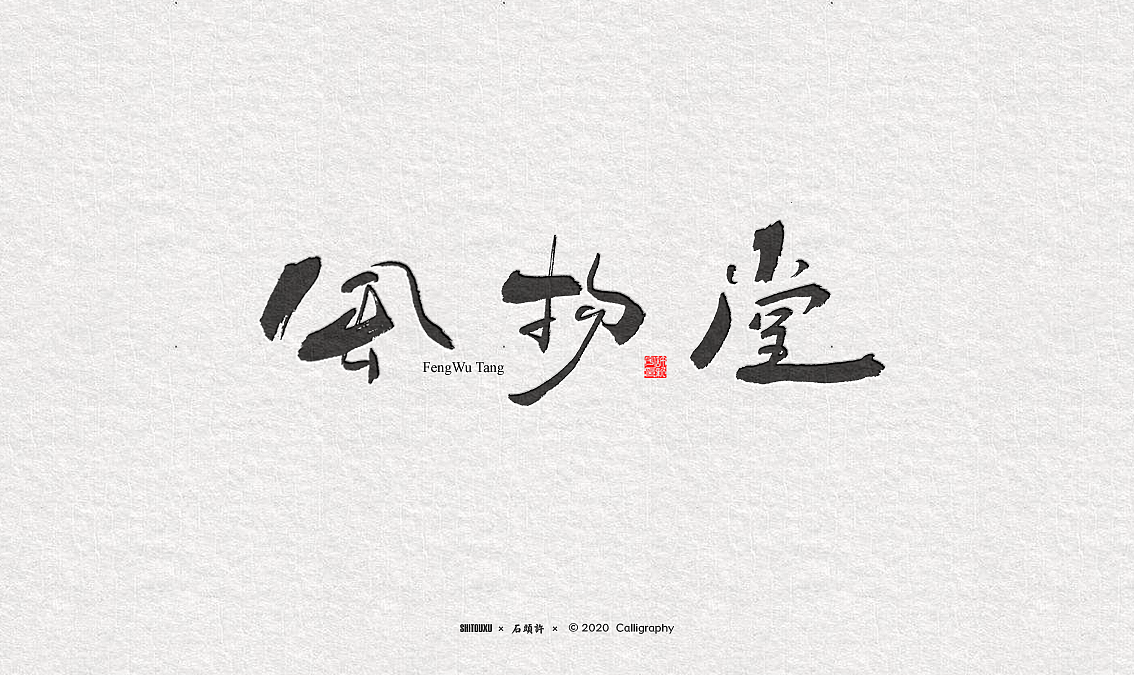 風物堂
FengWu Tang
SHITOUXU × 石頭許 × © 2020 Calligraphy